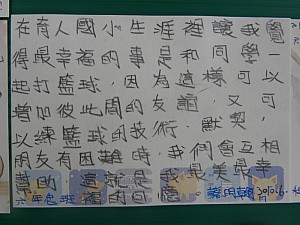 在育人國小生涯裡讓我覺
得最幸福的事是和同學一
起打籃球，因為這樣可以
增加彼此間的友誼，又可
以練籃球的技術．默契，
朋友有困難時，我們會互相
幫助，這就是我最美最幸
福的回憶。
六年 班